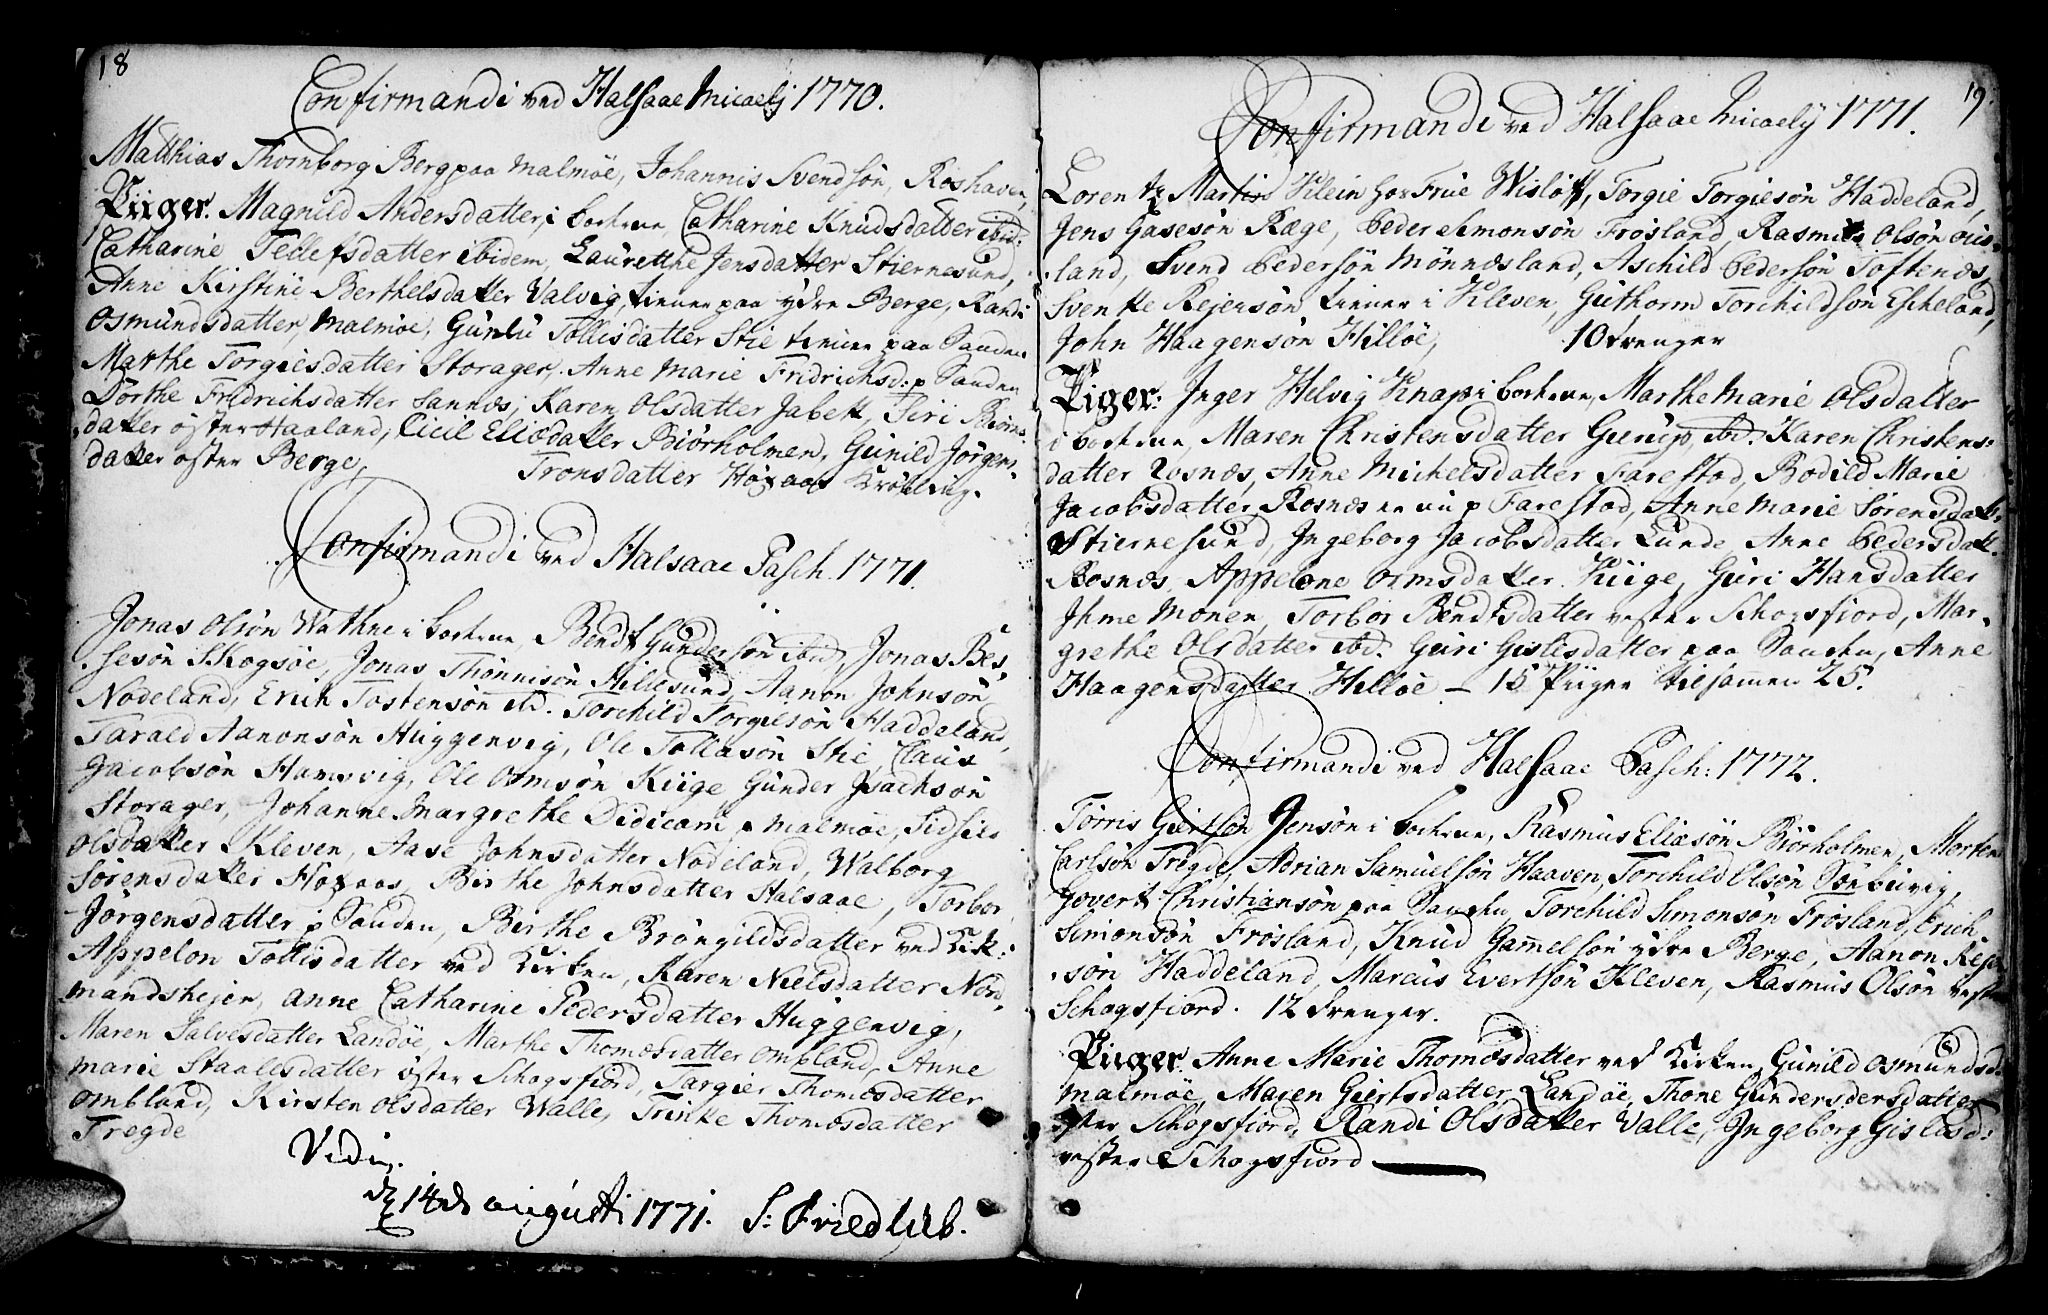 18
Confirmandi ved Halsaae Micaelj 1770.
Matthias Thornborg Berg paa Malmöe, Johannis Svendsön, Roshaven,
Piiger. Magnild Andersdatter, i bochene, Catharine Knudsdatter ibid:
Catharine Tellefsdatter ibidem, Lauretthe Jensdatter Stiernesund,
Anne Kirstine Berthelsdatter Valvig, tiener paa ydre Berge, Randi
Osmundsdatter, Malmöe, Gunlu Tollisdatter Stie tiener paa Sanden
Marthe Torgiesdatter Storager, Anne Marie Fridrichsd: p Sanden
Dorthe Fridrichsdatter Sannes, Karen Olsdatter Jabekk, Siri Biörns
datter öster Haaland, Cicil Eliædatter Biörholmen, Gunild Jörgens
datter öster Berge,
Tronsdatter Höyaas Krölling.
Confirmandi ved Halsaae Pasch. 1771.
Jonas Olsön Wathne i bochene, Bendt Gundersön ibid, Jonas Bes
sesön Skogsöe, Jonas Thönnisön Hillesund, Aanon Johnsön
Nodeland, Erich Tostensön ibd. Torchild Torgiesön Haddeland,
Tarald Aanonsön Huggenvig, Ole Tollasön Stie, Claus
Jacobsön Hamsvig, Ole Ormsön Kiige, Gunder Isachsön
Storager, Johanne Margrethe Didicam p Malmöe, Sidsies
Olsdatter Kleven, Aase Johnsdatter Nodeland, Walborg
Sörensdatter Höyaas, Birthe Johnsdatter Halsaae, Torbor
Jörgensdatter p Sanden, Birthe Bröngildsdatter ved Kirk:
Appelon Tollisdatter ved Kirken, Karen Nielsdatter Nord
mandshejen, Anne Catharine Pedersdatter Huggenvig,
Maren Salvesdatter Landöe, Marthe Thomæsdatter Ombland, Anne
Marie Staalesdatter öster Schogsfiord, Targier Thomæsdatter
Ombland, Kirsten Olsdatter Walle, Trinke Thomæsdatter
Tregde
Vidi.
d 14de augusti 1771. S: Friedlieb.
19.
Confirmandi ved Halsaae Micaelij 1771.
Lorentz Martin Klein hos Frue Wislöff, Torgie Torgiesön Haddeland,
Jens Gasesön Ræge, Peder Simonsön Frösland, Rasmus Olsön Ous
land, Svend Pedersön Mönnesland, Aschild Pedersön Toftenes,
Svenke Rejersön tiener i Kleven, Guthorm Torchildsön Escheland,
John Haagensön Hillöe, 10 drenger
Piger: Inger Helvig Knap i bochene, Marthe Marie Olsdatter
i bochene, Maren Christensdatter Gierup, ibd. Karen Christens
datter Rosnæs, Anne Michelsdatter Farestad, Bodild Marie
Jacobsdatter Rosnæs er nu p Farestad, Anne Marie Sörensdatt:
Stiernesund, Ingeborg Jacobsdatter Lunde, Anne Pedersdatt:
Rosnæs, Appelone Ormsdatter Kiige, Guri Hansdatter
Ihme Monen, Torbor Bendtsdatter vester Schogsfiord, Mar
grethe Olsdatter ibd. Guri Gislisdatter paa Sanden, Anne
Haagensdatter Hillöe – 15 Piiger tilsamen 25.
Confirmandi ved Halsaae Pasch: 1772.
Törris Giertsön Jensön i bochene, Rasmus Eliasön Biörholmen, Morten
Carlsön Tregde, Adrian Samuelsön Haaven, Torchild Olsön Sonbuvig,
Govert Christiansön paa Sanden, Torchild Simonsön Frösland, Erich
Simonsön Frösland, Knud Gamelsön ydre Berge, Aanon Rejer
sön Haddeland, Marcus Evertsön Kleven, Rasmus Olsön vester
Schogsfiord. 12 drenger.
Piiger. Anne Marie Thomæsdatter ved Kirken, Gunild Osmundsd
Malmöe, Maren Giertsdatter Landöe, Thone Gundersdersdatter
öster Schogsfiord, Randi Olsdatter Valle, Ingeborg Gislisd:
vester Schogsfiord